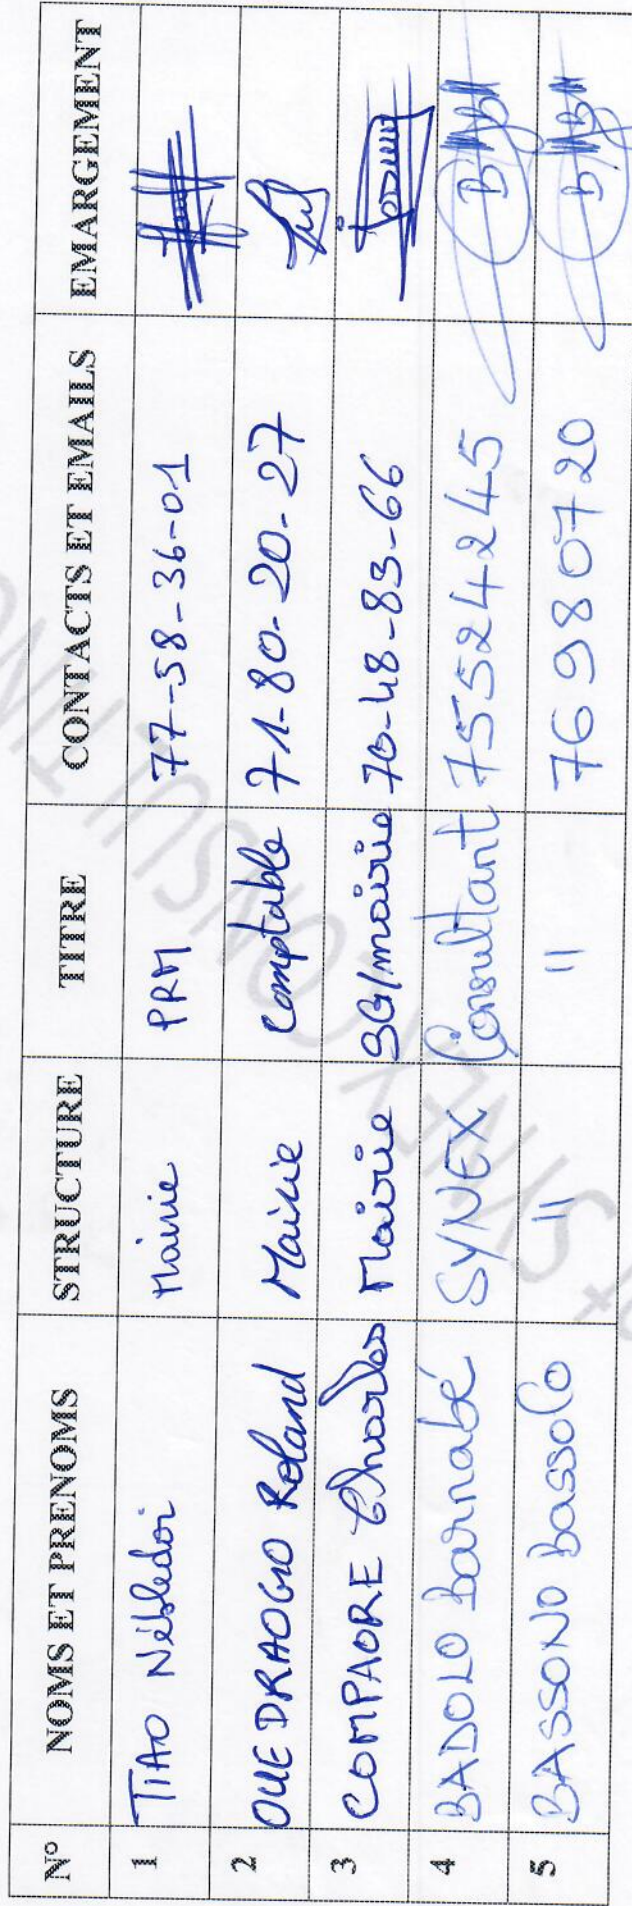 N° NOMS ET PRENOMS STRUCTURE TITRE CONTACTS ET EMAILS EMARGEMENT
1 TIAO Nébledoi Mairie PRM 77-58-36-01
2 OUEDRAOGO Roland Mairie Comptable 71-80-20-27
3 COMPAORE Charles Mairie SG/mairie 70-48-83-66
4 BADOLO Barnabé SYNEX Consultant 75524245
5 BASSONO Bassolo " " 76980720
SYNEX CONSULTING